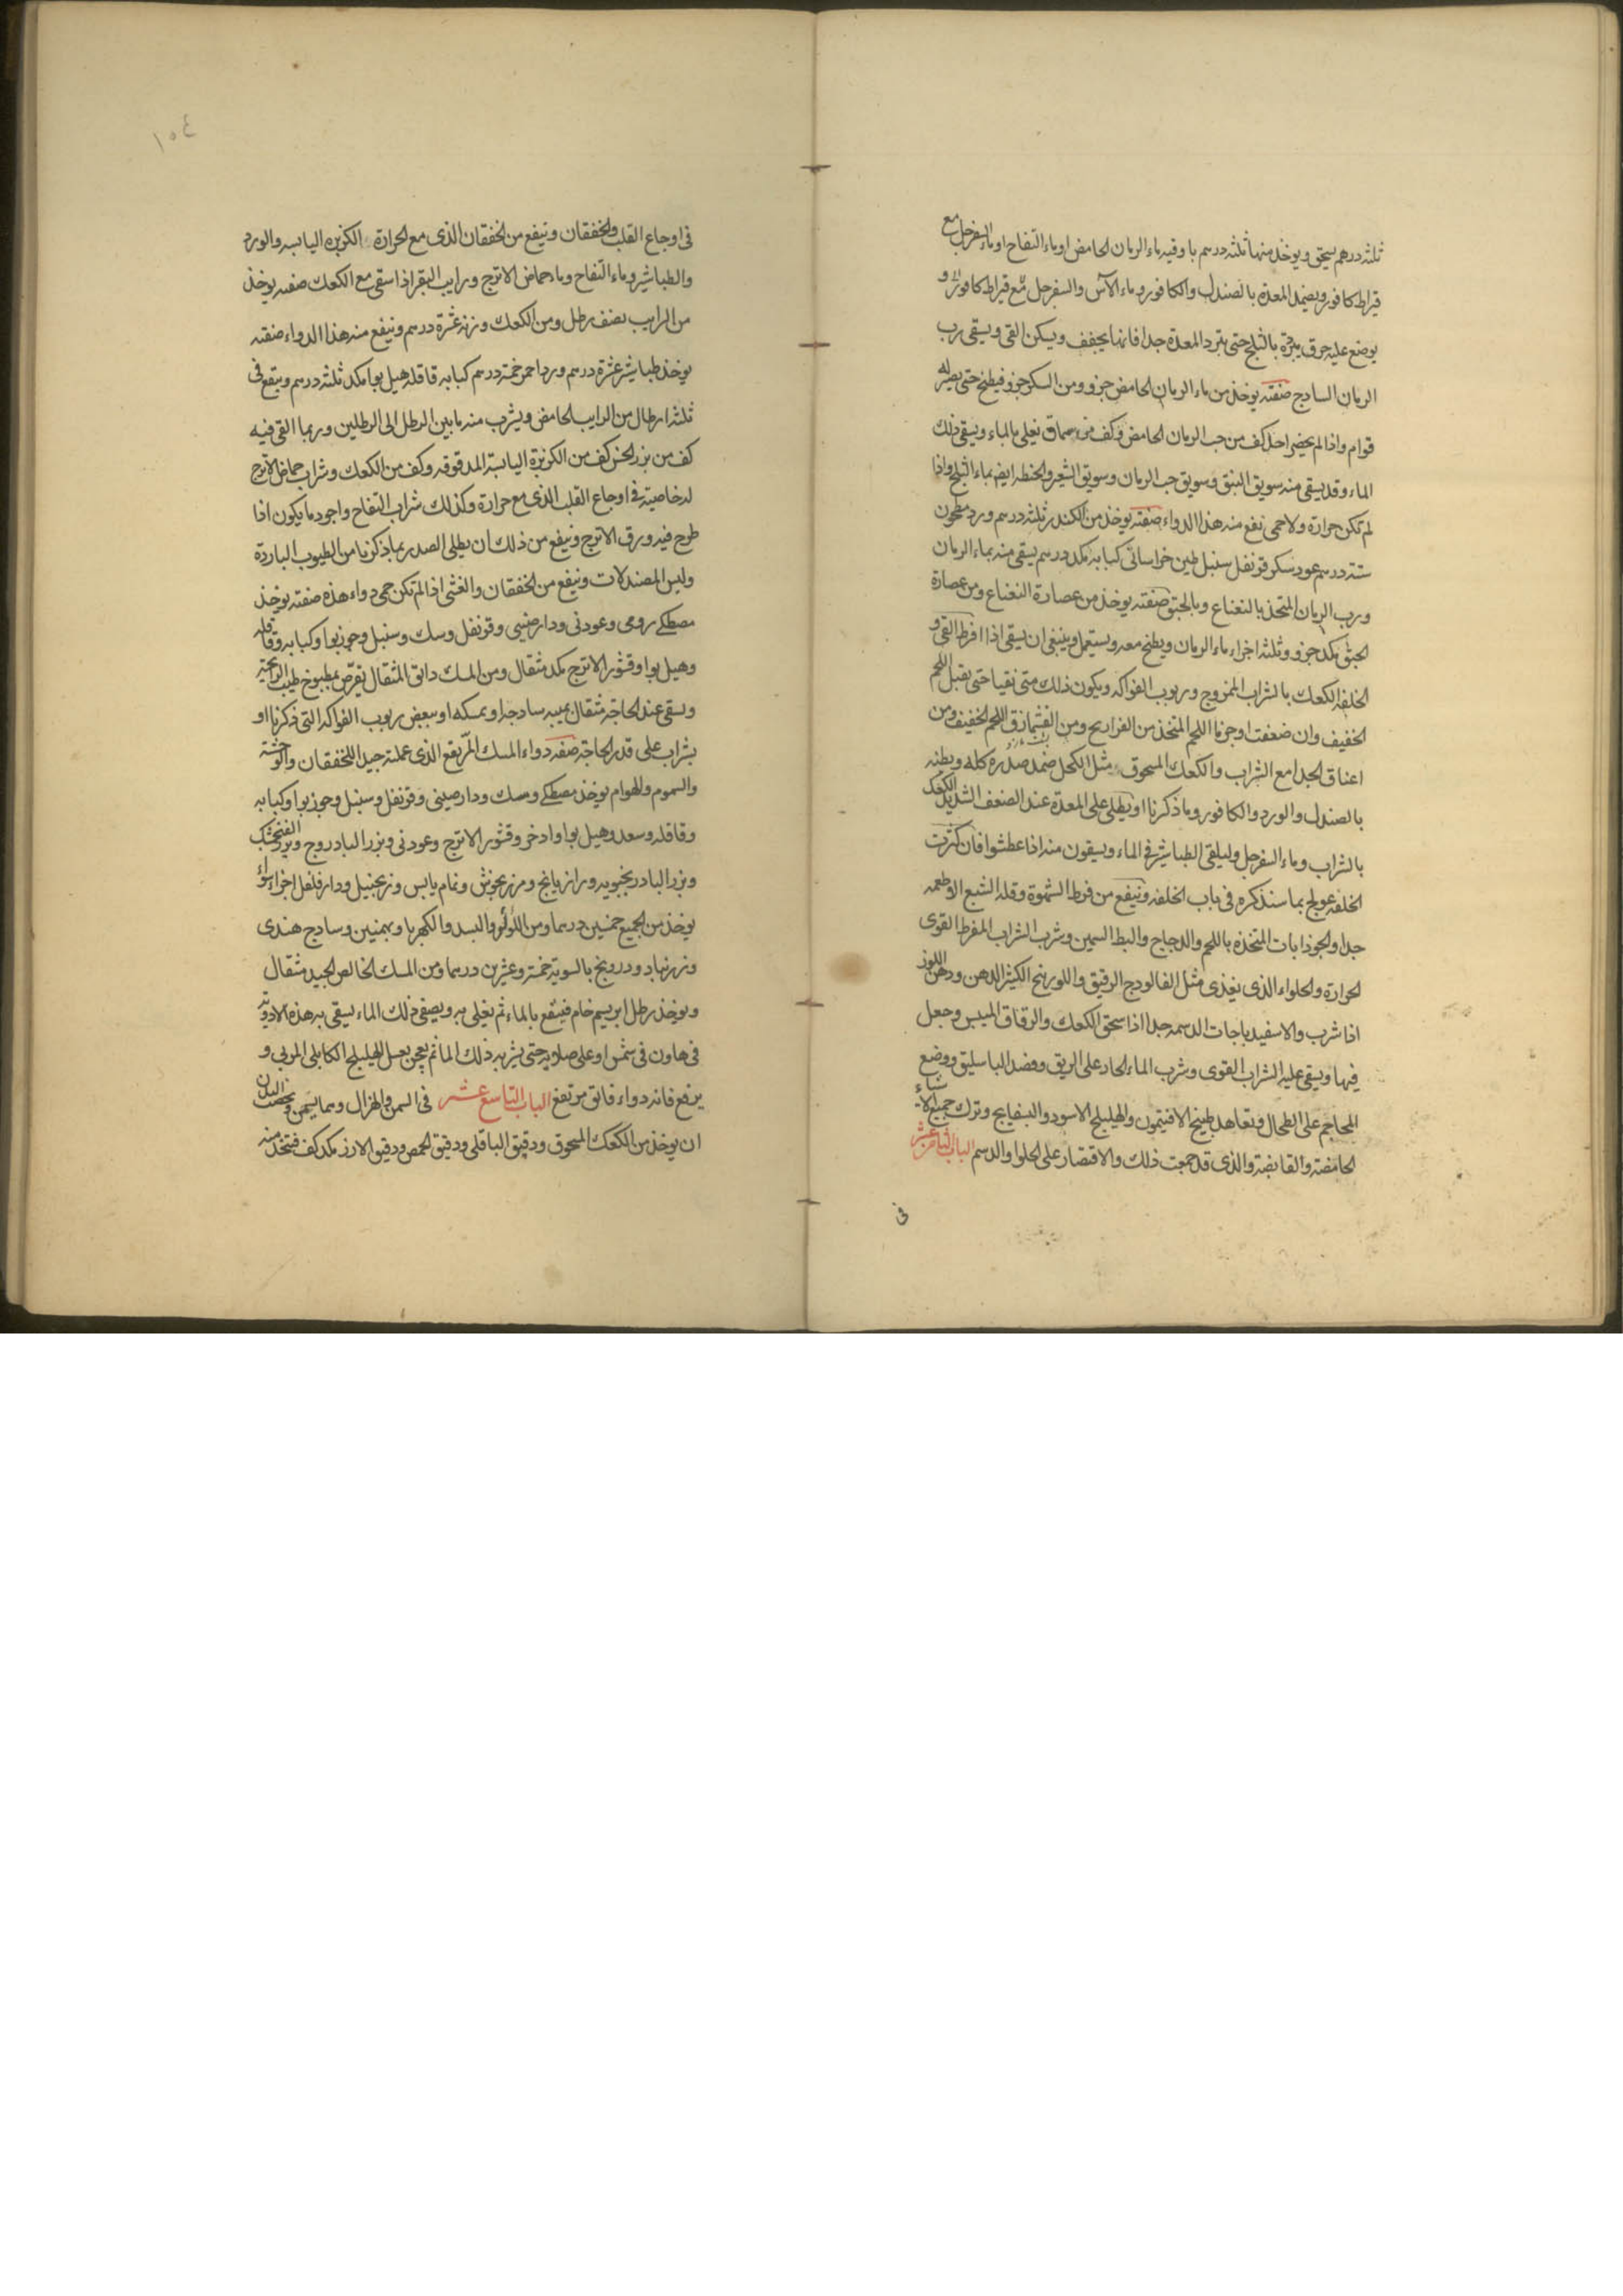 ثلثه درهم يسحق ويوخذ منها ثلثه درسم باوقيه ماء الرمان الحامض او ماء التفاح او ماء السفرجل مع
قيراط كافور ويضمد المعدة بالصندل والكافور وماء الآس والسفرجل مع قيراط كافور و
يوضع عليه خرق مبردة بالثلج حتى تبرد المعدة جدا فانها يجفف ويسكن القى ويسقى رب
الرمان الساذج صفته يوخذ من ماء الرمان الحامض جزو ومن السكر جزو فيطبخ حتى يصير له
قوام واذا لم يحضر اخذ كف من حب الرمان الحامض وكف من سماق يغلى بالماء ويسقى ذلك
الماء وقد يسقى منه سويق النبق وسويق حب الرمان وسويق الشعير والحنطه ايضا بماء الثلج واذا
لم تكن حرارة ولا حمى نفع منه هذا الدواء صفته يوخذ من الكندر ثلثه درسم ورد مطحون
ستة درسم عود سكر قرنفل سنبل طين خراسانى كبابه مكد درسم يسقى منه بماء الرمان
ورب الرمان المتخذ بالنعناع وبالحبق صفته يوخذ من عصارة النعناع ومن عصارة
الحبق مكد جزو وثلثه اجزاء ماء الرمان ويطبخ معه ويستعمل وينبغى ان يسقى اذا افرط القى و
الخلفه الكعك بالشراب الممزوج وربوب الفواكه ويكون ذلك متى تقيا حتى يقبل اللحم
الخفيف وان ضعفت اوجرنا اللحم المتخذ من الفراريج ومن اللحم الخفيف ومن
اعناق الجدا مع الشراب والكعك المسحوق مثل الكحل ضمد صدره كله وبطنه
بالصندل والورد والكافور وما ذكرنا او يطلى على المعدة عند الضعف الشديد الكعك
بالشراب وماء السفرجل وليلقى الطباشير فى الماء ويسقون منه اذا عطشوا فان كثرت
الخلفه عولج بما سنذكره فى باب الخلفه وينفع من فرط الشهوة وقله الشبع الاطعمه
جدا والجوذابات المتخذه باللحم والدجاج والبط السمين وشرب الشراب المفرط القوى
الحرارة والحلواء الذى يغذى مثل الفالوذج الرقيق واللوزينج الكثير الدهن ودهن اللوز
اذا شرب والاسفيدباجات الدسمه جدا اذا سحق الكعك والرقاق الميبس وجعل
فيها ويسقى عليه الشراب القوى وشرب الماء الحار على الريق وفصد الباسليق ووضع
المحاجم على الطحال وتعاهد طبيخ الافتيمون والهليلج الاسود والبسفايج وترك جميع الاشياء
الحامضة والقابضة والذى قد جمعت ذلك والاقتصار على الحلوا والدسم الباب الثامن عشر
فى
١٥٤
فى اوجاع القلب والخفقان وينفع من الخفقان الذى مع الحرارة الكزبره اليابسه والورد
والطباشير وماء التفاح وماء حماض الاترج ورايب البقر اذا سقى مع الكعك صفته يوخذ
من الرايب نصف رطل ومن الكعك وزنه عشرة درسم وينفع منه هذا الدواء صفته
يوخذ طباشير عشرة درسم ورد احمر خمسة درسم كبابه قاقله هيل بوا مكد ثلثه درسم وينقع فى
ثلثه ارطال من الرايب الحامض ويشرب منه ما بين الرطل الى الرطلين وربما القى فيه
كف من بزر الخس كف من الكزبرة اليابسة المدقوقه وكف من الكعك وشراب حماض الاترج
له خاصية فى اوجاع القلب الذى مع حرارة وكذلك شراب التفاح واجود ما يكون اذا
طرح فيه ورق الاترج وينفع من ذلك ان يطلى الصدر بما ذكرنا من الطيوب الباردة
ولبس المصندلات وينفع من الخفقان والغشى اذا لم تكن حمى دواء هذه صفته يوخذ
مصطكى رومى وعود نى ودارصينى وقرنفل وسك وسنبل وجوزبوا وكبابه وقاقله
وهيل بوا وقشور الاترج مكد مثقال ومن المسك دانق المثقال يقرص بمطبوخ طيب الرائحة
ويسقى عند الحاجة مثقال بميبه ساذجه او بمسكه او ببعض ربوب الفواكه التى ذكرنا او
بشراب على قدر الحاجة صفه دواء المسك المرتفع الذى عملته جيد للخفقان والوحشة
والسموم والهوام يوخذ مصطكى ومسك ودارصينى وقرنفل وسنبل وجوزبوا وكبابه
وقاقله وسعد وهيل بوا واذخر وقشور الاترج وعود نى وبزر الباذروج وبزر الفنجمشك
وبزر الباذرنجبويه ورازيانج ومرزنجوش ونمام يابس وزنجبيل ودارفلفل اجزاء سواء
يوخذ من الجميع خمسين درسما ومن اللؤلؤ والبسد والكهربا وبهمنين وساذج هندى
وزرنباد ودرونج بالسوية خمسة وعشرين درسما ومن المسك الخالص الجيد مثقال
ويوخذ رطل ابريسم خام فينقع بالماء ثم يغلى به ويصفى ذلك الماء يسقى به هذه الادوية
فى هاون فى شمس او على صلايه حتى يشربه ذلك الماء ثم يعجن بعسل الهليلج الكابلى المربى و
يرفع فانه دواء فائق مرتفع الباب التاسع عشر فى السمن والهزال ومما يسمن ويخصب البدن
ان يوخذ من الكعك المسحوق ودقيق الباقلى ودقيق الحمص ودقيق الارز مكد كف فيتخذ منه